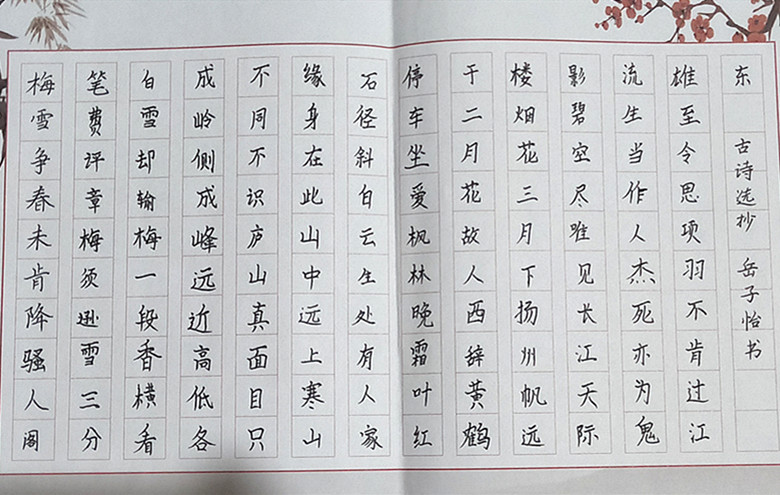 梅雪争春未肯降骚人阁
笔费评章梅须逊雪三分
白雪却输梅一段香横看
成岭侧成峰远近高低各
不同不识庐山真面目只
缘身在此山中远上寒山
石径斜白云生处有人家
停车坐爱枫林晚霜叶红
于二月花故人西辞黄鹤
楼烟花三月下扬州帆远
影碧空尽唯见长江天际
流生当作人杰死亦为鬼
雄至令思项羽不肯过江
东
古诗选抄 岳子怡书